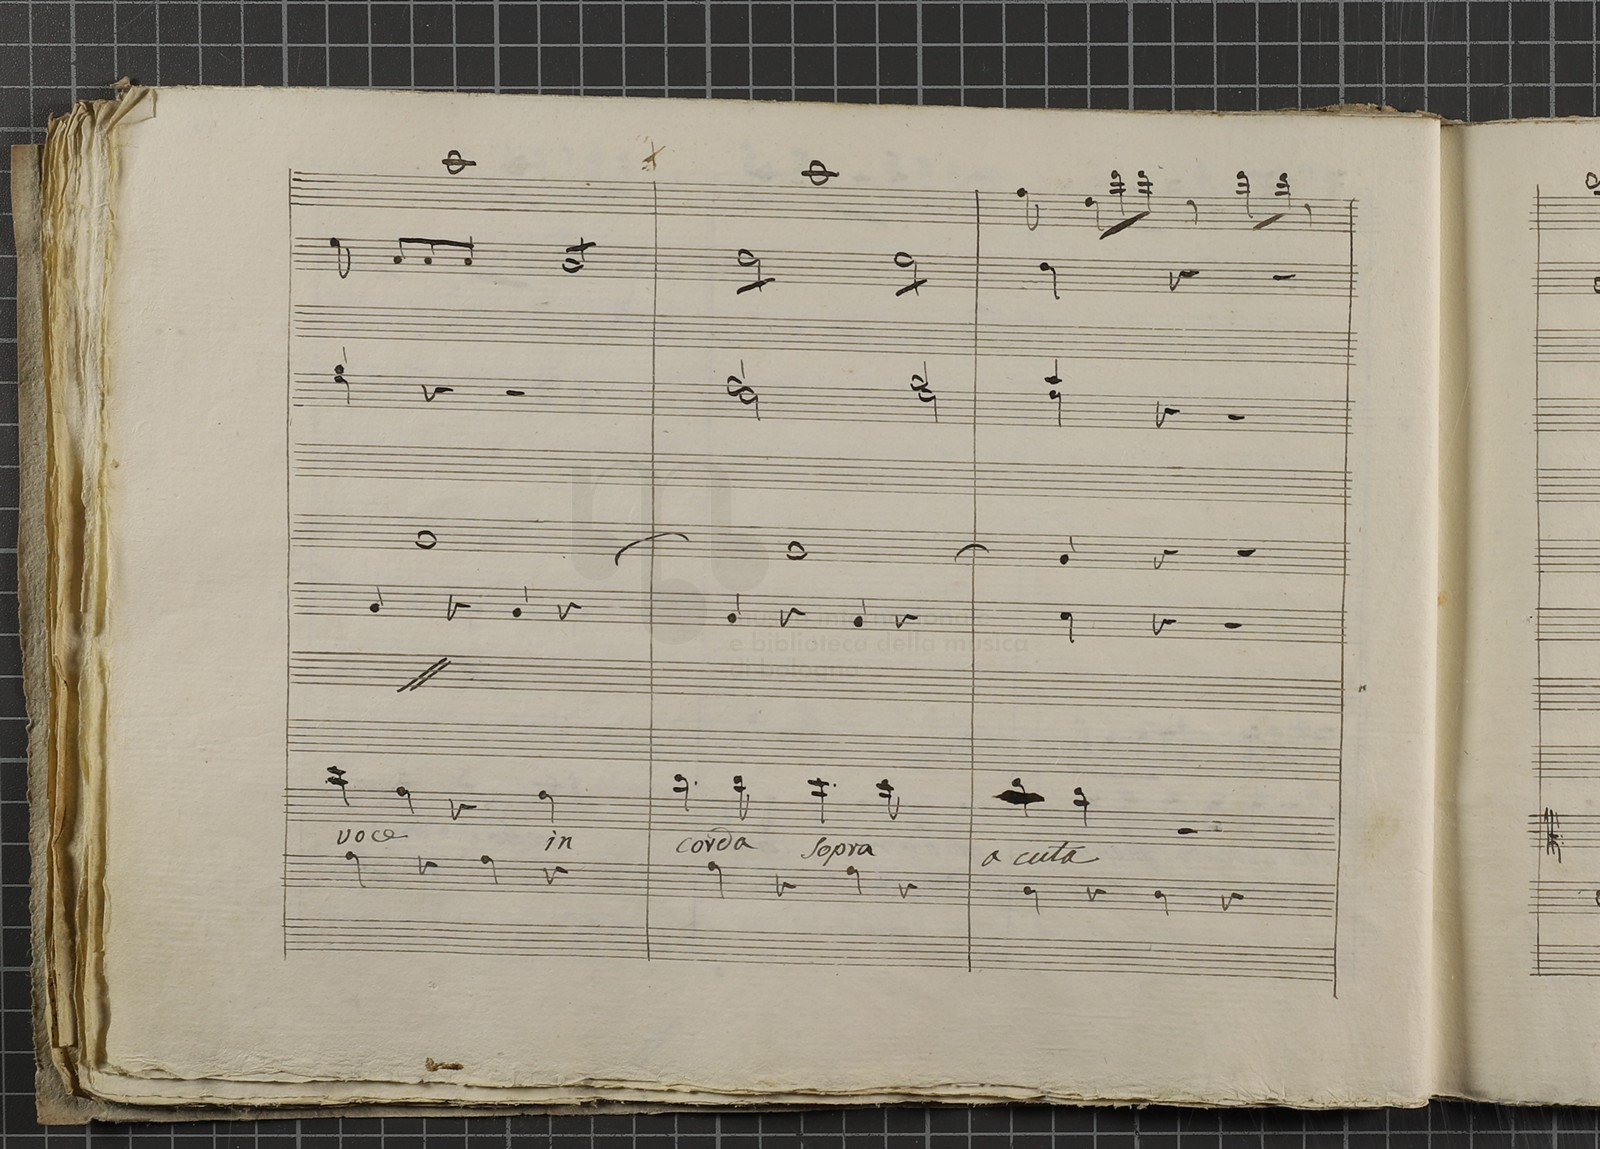 museo internazionale
e biblioteca della musica
di bologna
voce in corda sopra a cuta